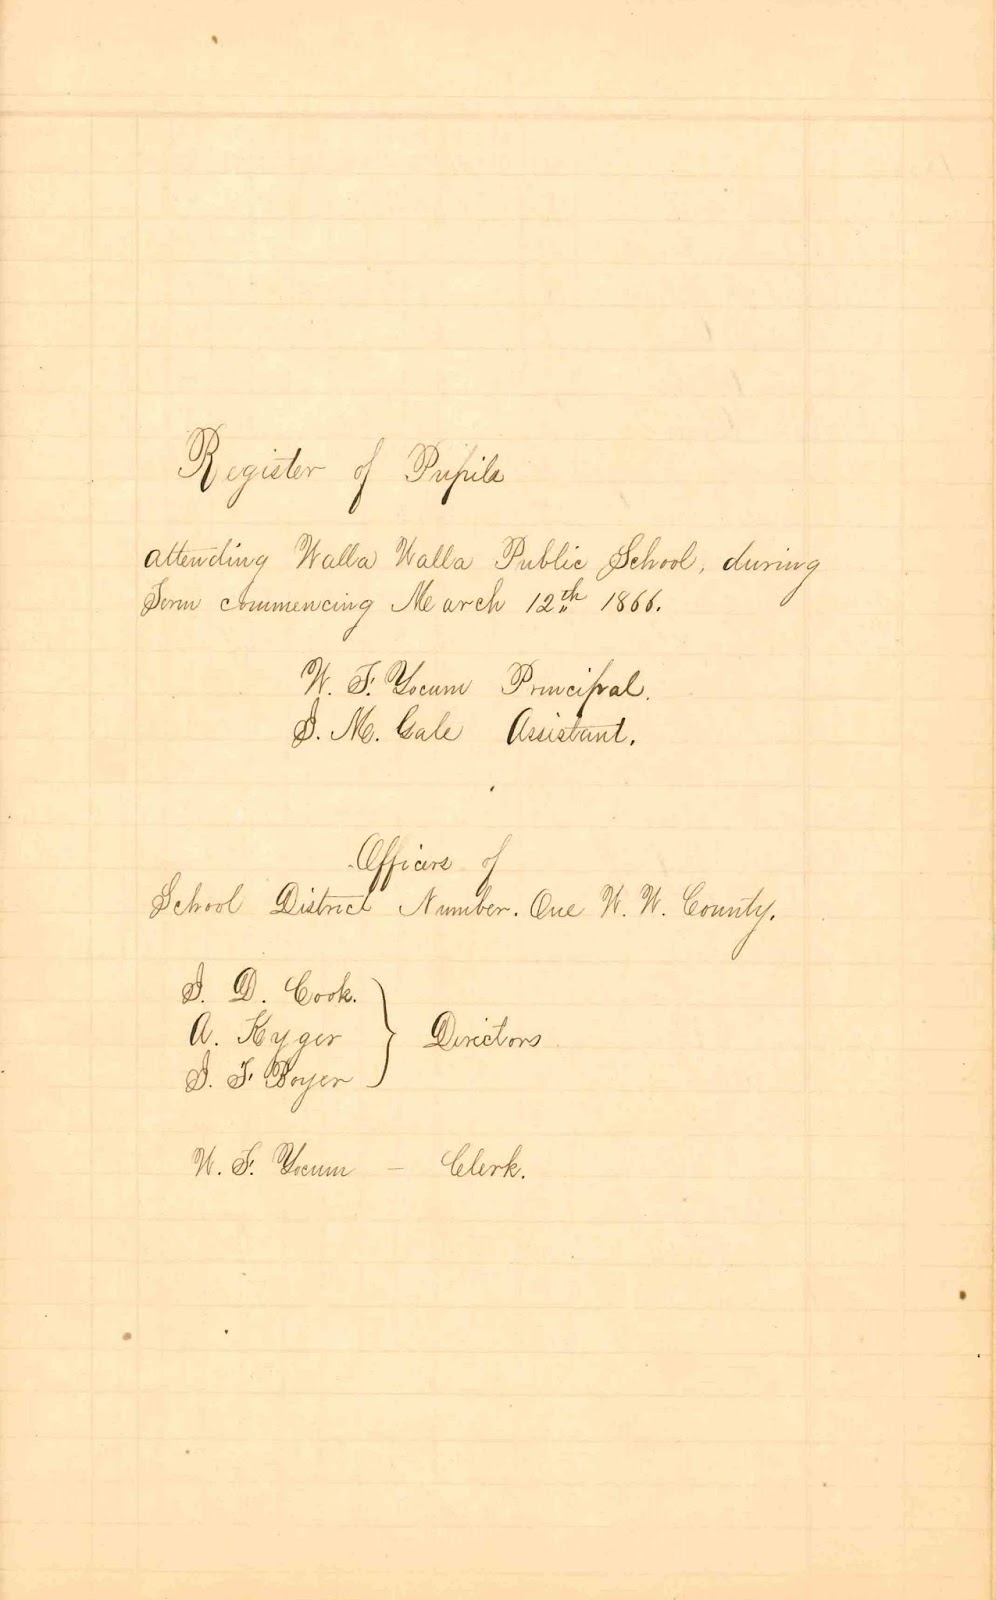 Register of Pupils
attending Walla Walla Public School, during
Term commencing March 12th 1866.
W. F. Yocum Principal.
S. M. Gale Assistant.
Officers of
School District Number. One W. W. County.
J. D. Cook.
A. Kyger } Directors
J. F. Boyer
W. F. Yocum – Clerk.